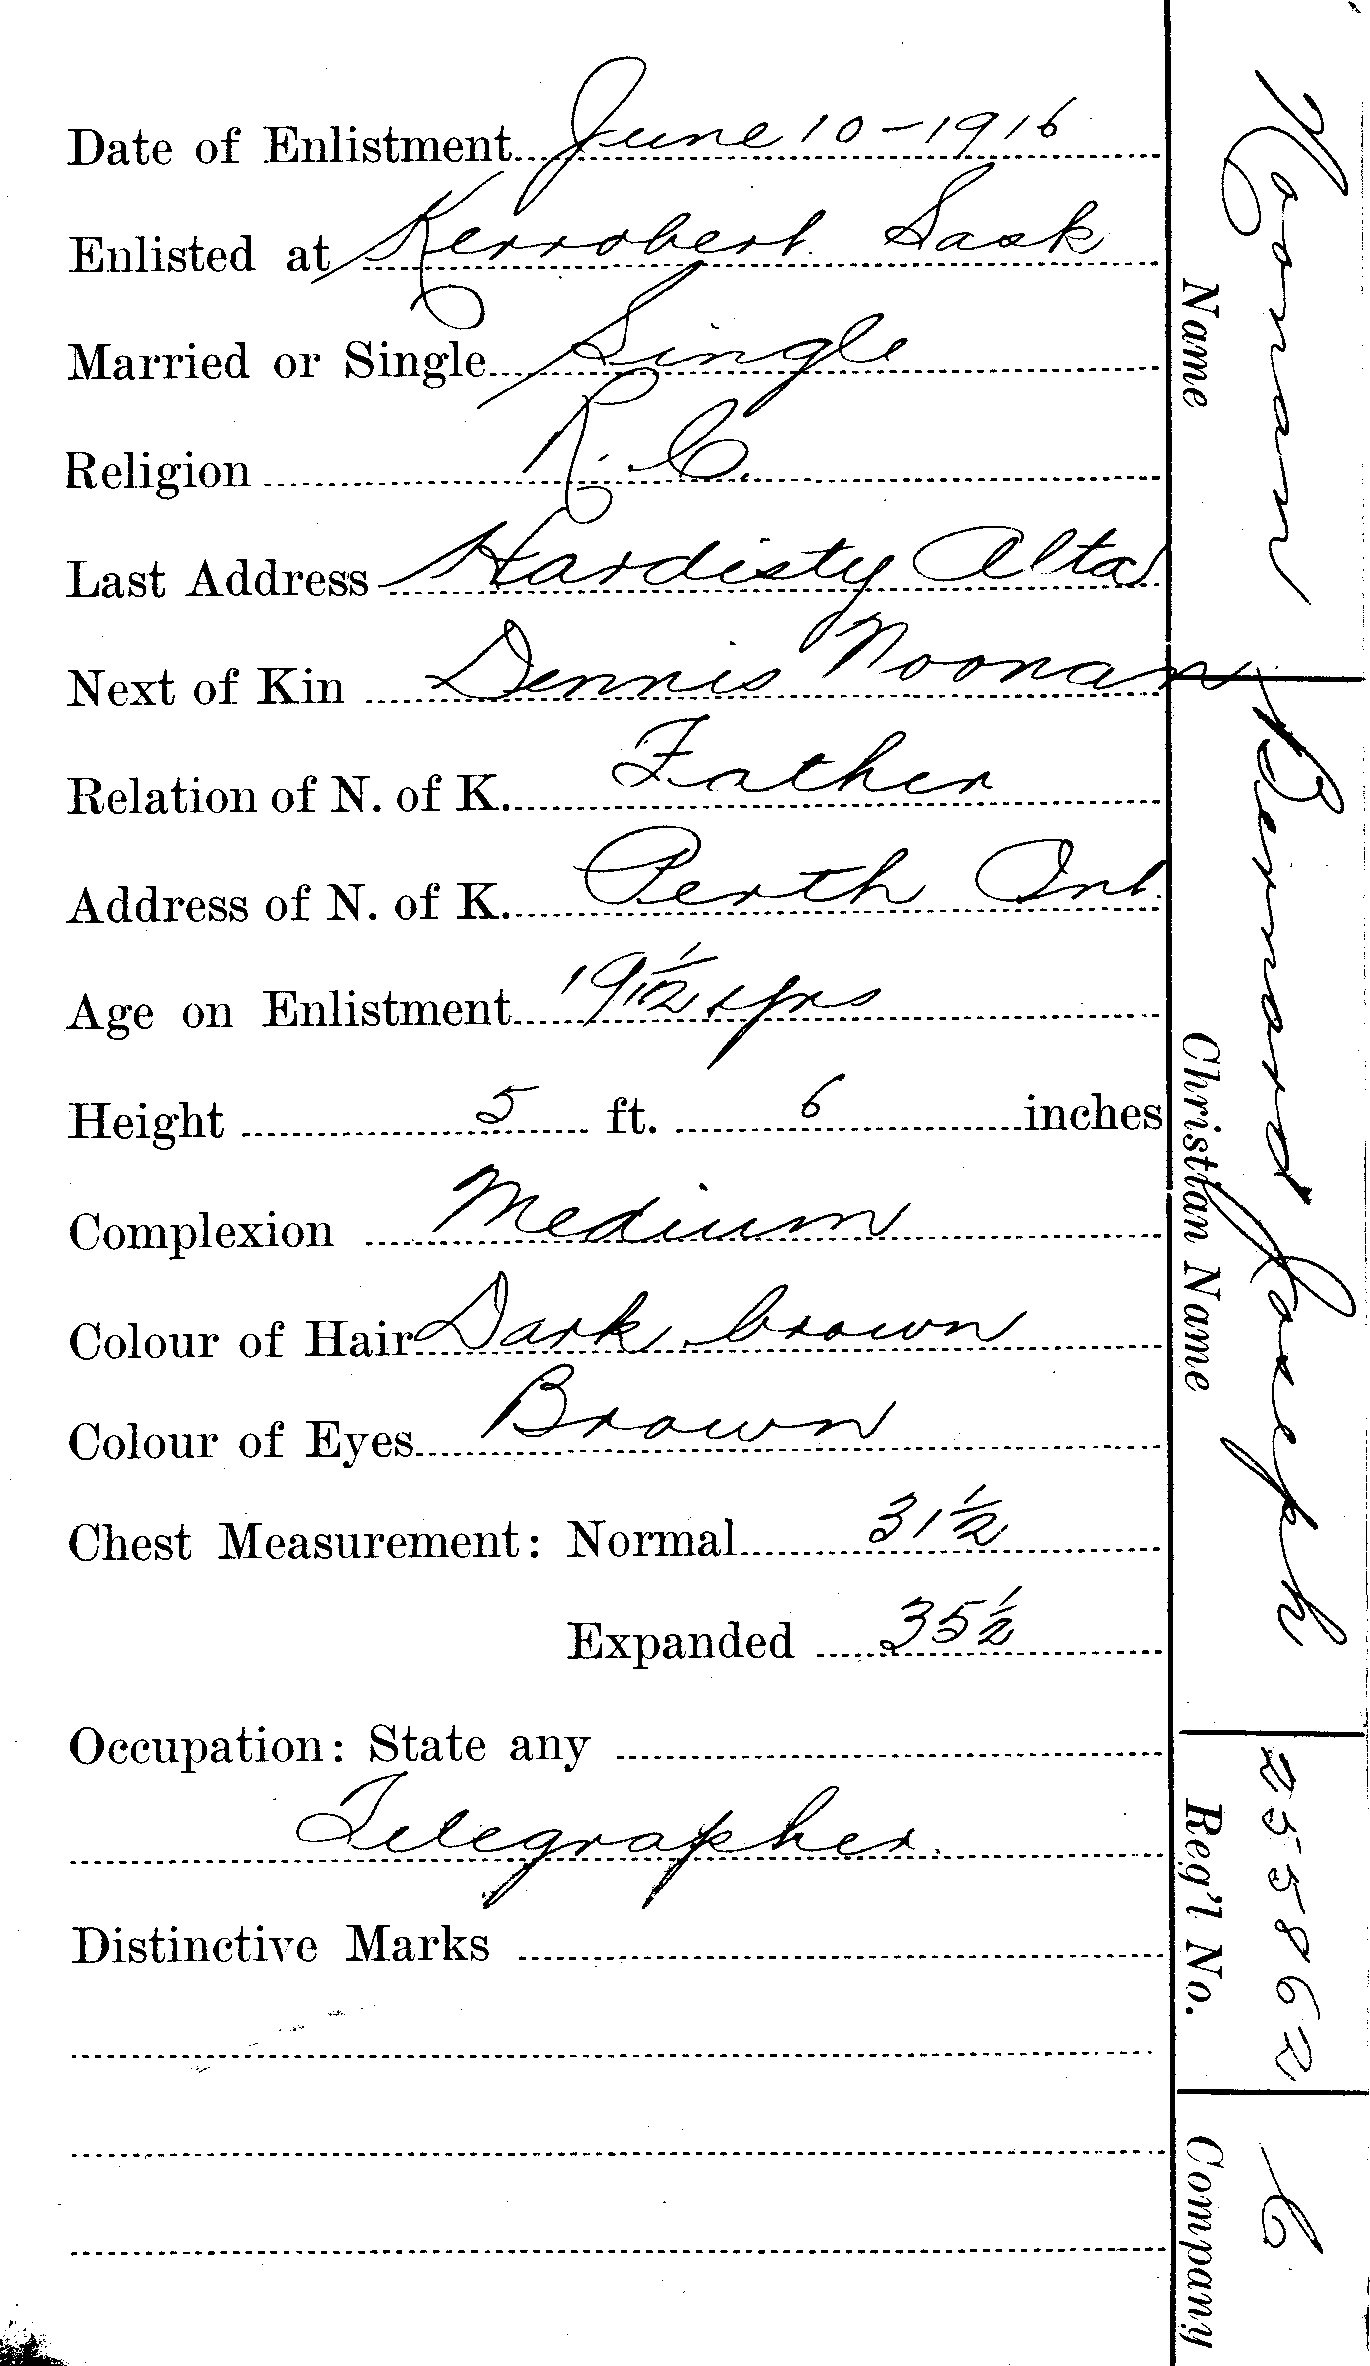 Date of Enlistment June 10-1916
Enlisted at Kerrobert Sask
Married or Single Single
Religion R. C.
Last Address Hardisty Alta
Next of Kin Dennis Noonan
Relation of N. of K. Father
Address of N. of K. Perth Ont.
Age on Enlistment 19 1/2 yrs
Height 5 ft. 6 inches
Complexion Medium
Colour of Hair Dark brown
Colour of Eyes Brown
Chest Measurement: Normal 31 1/2
Expanded 35 1/2
Occupation: State any
Telegrapher
Distinctive Marks
Noonan
Name
Bernard Joseph
Christian Name
255862
Reg'l No.
C
Company